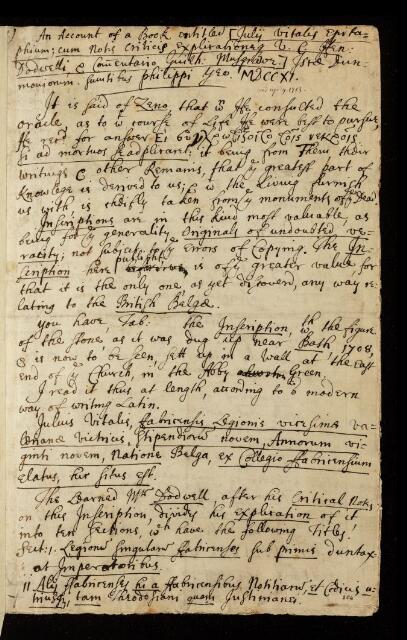 An Account of a Book entitled [Julij Vitalis Epita-
phium; cum Notis Criticis Explicationeq V. C. Hen:
Dodwelli & Commentario Guilh: Musgrave.] Iscæ Dun-
moniorum. sumtibus Philippi Yeo. MDCCXI.
It is said of Zeno, that wn He consulted the
Oracle as to wt course of Life He were best to pursue,
He recd for answer Ei
si ad mortuos se adplicaret; it being from Them their
writings & other Remains, that ye greatest part of
Knowlege is derived to us; & wt the Living furnish
us with is cheifly taken from ye monuments of ye Dead.
Inscriptions are in this kind most valuable, as
being for ye generality Originals of undoubted ve-
racity; not subject to ye Errors of Copying. The In-
scription here publisht is of ye greater value for
that it is the only one, as yet discoverd, any way re-
lating to the British Belgæ.
You have, Tab: the Inscription, wth the figure
of the stone as it was dug up near Bath, 1708,
& is now to be seen, sett up in a Wall at the East
end of ye Church, in the Abby Green.
I read it thus at length, according to ye modern
way of writing Latin.
Julius Vitalis, Fabricensis Legionis vicesimæ Va-
lerianæ Victricis, Stipendiorū novem, Annorum vi-
ginti novem, Natione Belga, ex Collegio Fabricensium
elatus, hic situs est.
The Learned Mr. Dodwell, after his Critical Notes
on this Inscription, divides his explication of it
into ten sections, wch have the following Titles.
Sect: 1. Legionū singularū Fabricenses sub primis duntax-
at Imperatoribus.
11 Alij Fabricenses hi a Fabricensibus Notitiarū, et Codicis u-
triusq, tam Theodosiani quam Justinianei.